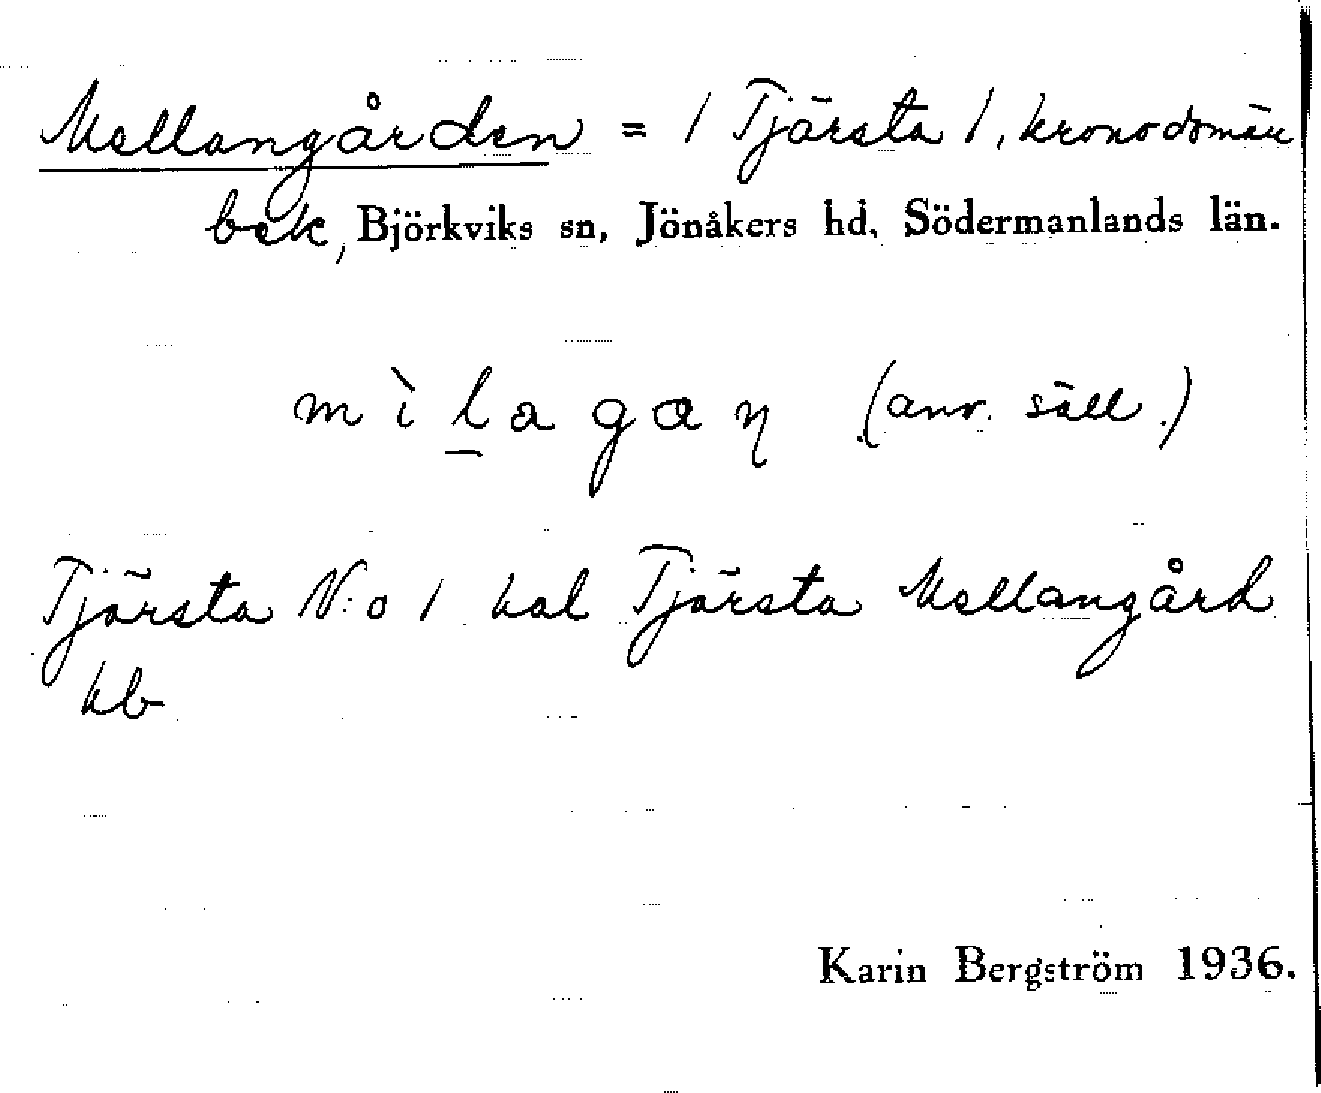 Mellangården = 1 Tjärsta 1, kronodomän
bek, Björkviks sn, Jönåkers hd, Södermanlands län.
mìḻagaŋ (anv. säll.)
Tjärsta N:o 1 kal Tjärsta Mellangård
kb
Karin Bergström 1936.